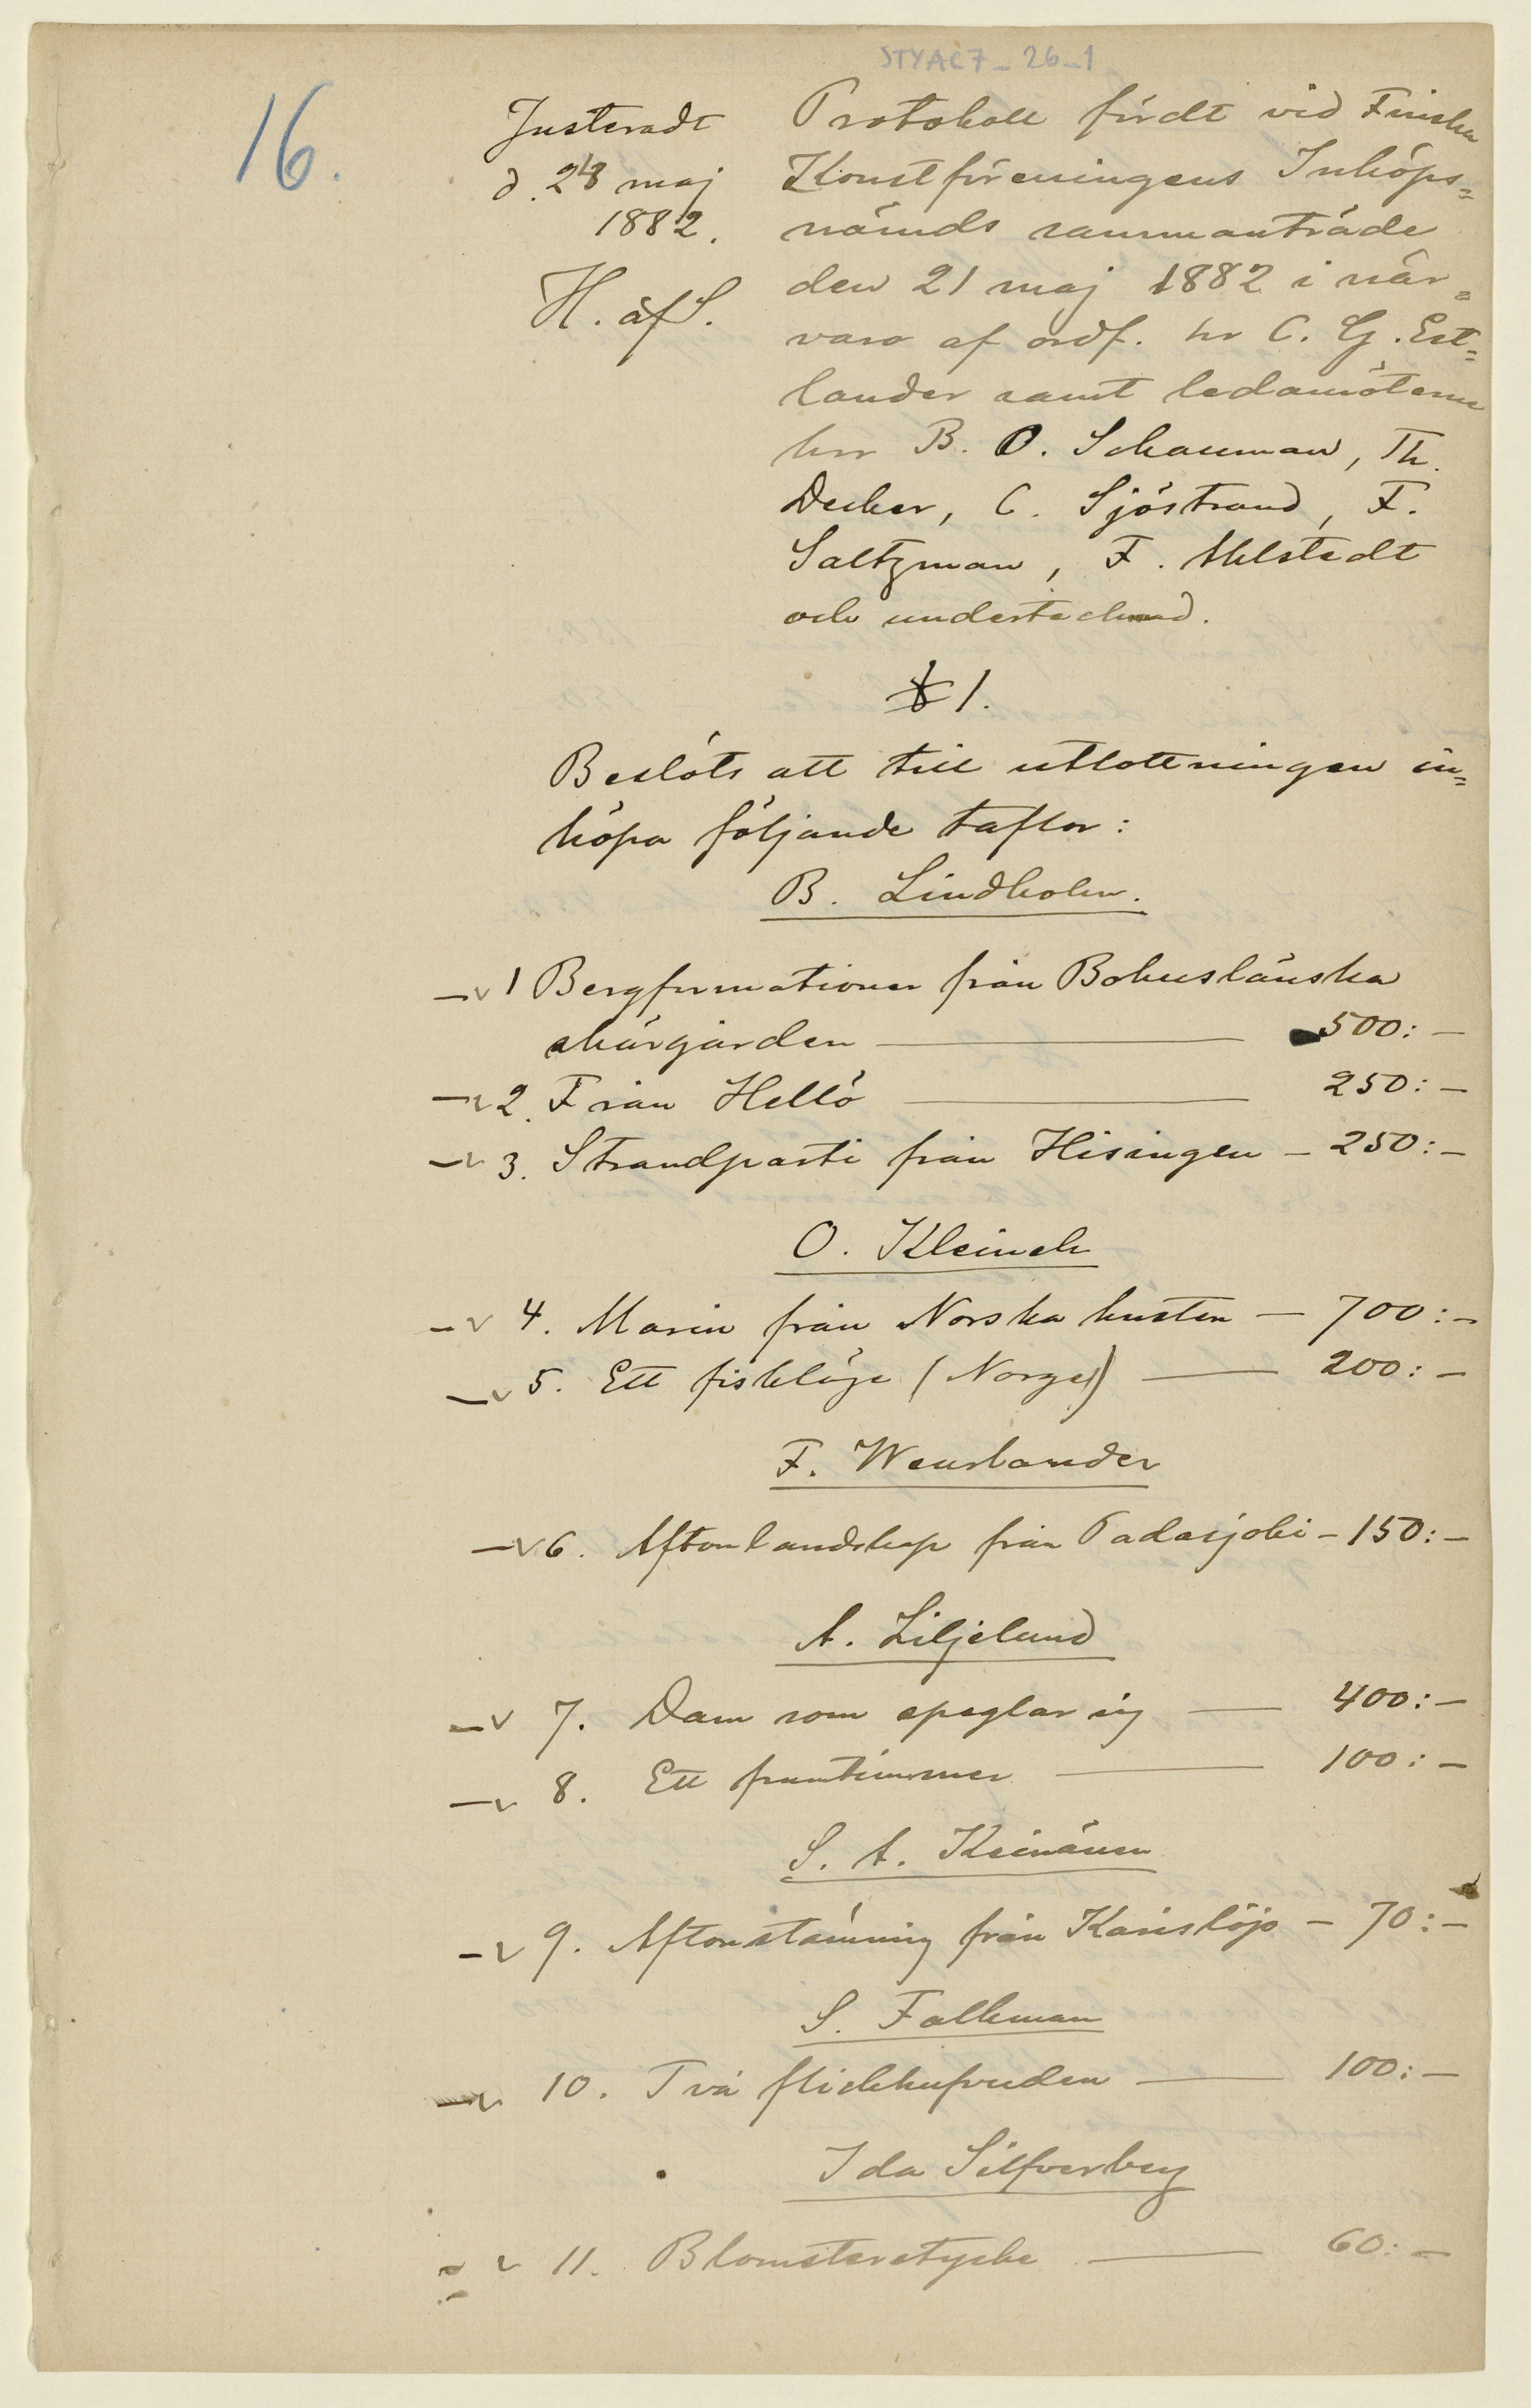 STYAC7_26_1
16.
Justeradt
d. 28 maj
1882.
H. af S.
Protokoll fördt vid Finska
Konstföreningens Inköps=
nämds sammanträde
den 21 maj 1882 i när=
varo af ordf. hr C. G. Est=
lander samt ledamöterne
hrr B. O. Schauman, Th.
Decker, C. Sjöstrand, F.
Saltzman, F. Ahlstedt
och undertecknad.
§ 1.
Beslöts att till utlottningen in=
köpa följande taflor:
B. Lindholm.
1 Bergformationer från Bohuslänska
skärgården — 500:—
2. Från Hellö — 250:—
3. Strandparti från Hisingen — 250:—
O. Kleineh
4. Marin från Norska kusten — 700:—
5. Ett fiskläge (Norge) — 200:—
F. Wenslander
6. Aftonlandskap från Padasjoki — 150:—
A. Liljelund
7. Dam som speglar sig — 400:—
8. Ett fruntimmer — 100:—
S. A. Keinänen
9. Aftonstämning från Karislojo — 70:—
S. Falkman
10. Två flickhufvuden — 100:—
Ida Silfverberg
11. Blomsterstycke — 60:—